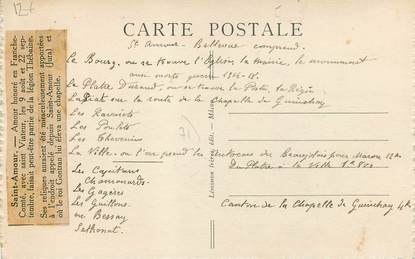 CARTE POSTALE
St Amour-Bellevue comprend
Le Bourg, ou se trouve l'Eglise la Mairie, le monument
aux morts guerre 1914-18.
Le Platre Durand, ou se trouve la Poste, la Régie
sur la route de la Chapelle de Guinchay
Les Ravinets
Les Poulets
Les Chevenins
La Ville. ou l'on prend les Autocars du Beaujolais pour Macon 12 Km
Du Platre à la Ville 1 K 800
Les Capitans
Chamonards
Les Gagères
Les Guillons
en Bessay
Sathonat
Canton de la Chapelle de Guinchay 4 K
71
Saint-Amour. — Amour honoré en Franche-
Comté, avec saint Viateur, les 9 août et 22 sep-
tembre, faisait peut-être partie de la légion Thébaine.
Ses reliques auraient été miraculeusement apportées
à l'endroit appelé depuis Saint-Amour (Jura) et
où le roi Gontran lui éleva une chapelle.